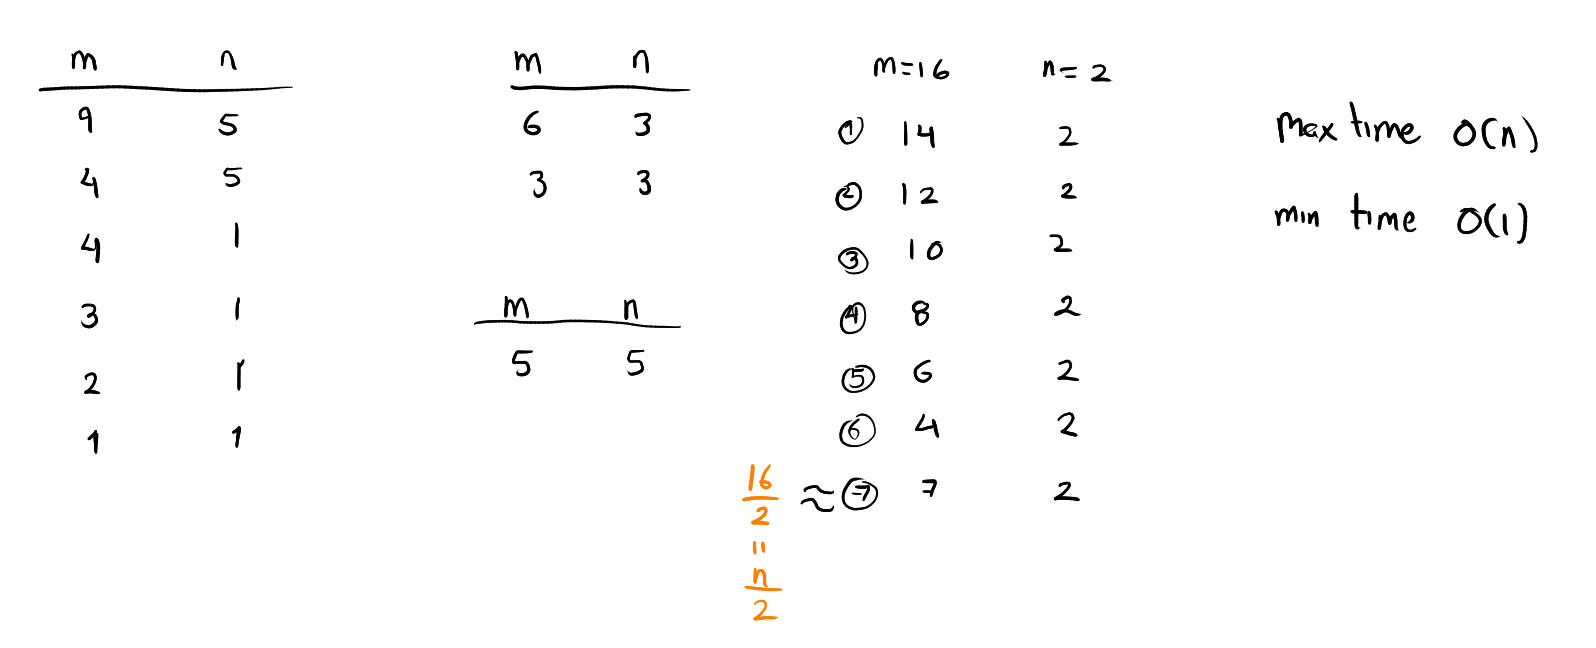 m n
9 5
4 5
4 1
3 1
2 1
1 1
m n
6 3
3 3
m n
5 5
m=16 n=2
① 14 2
② 12 2
③ 10 2
④ 8 2
⑤ 6 2
⑥ 4 2
16/2 ≈ ⑦ 7 2
=
n/2
max time O(n)
min time O(1)